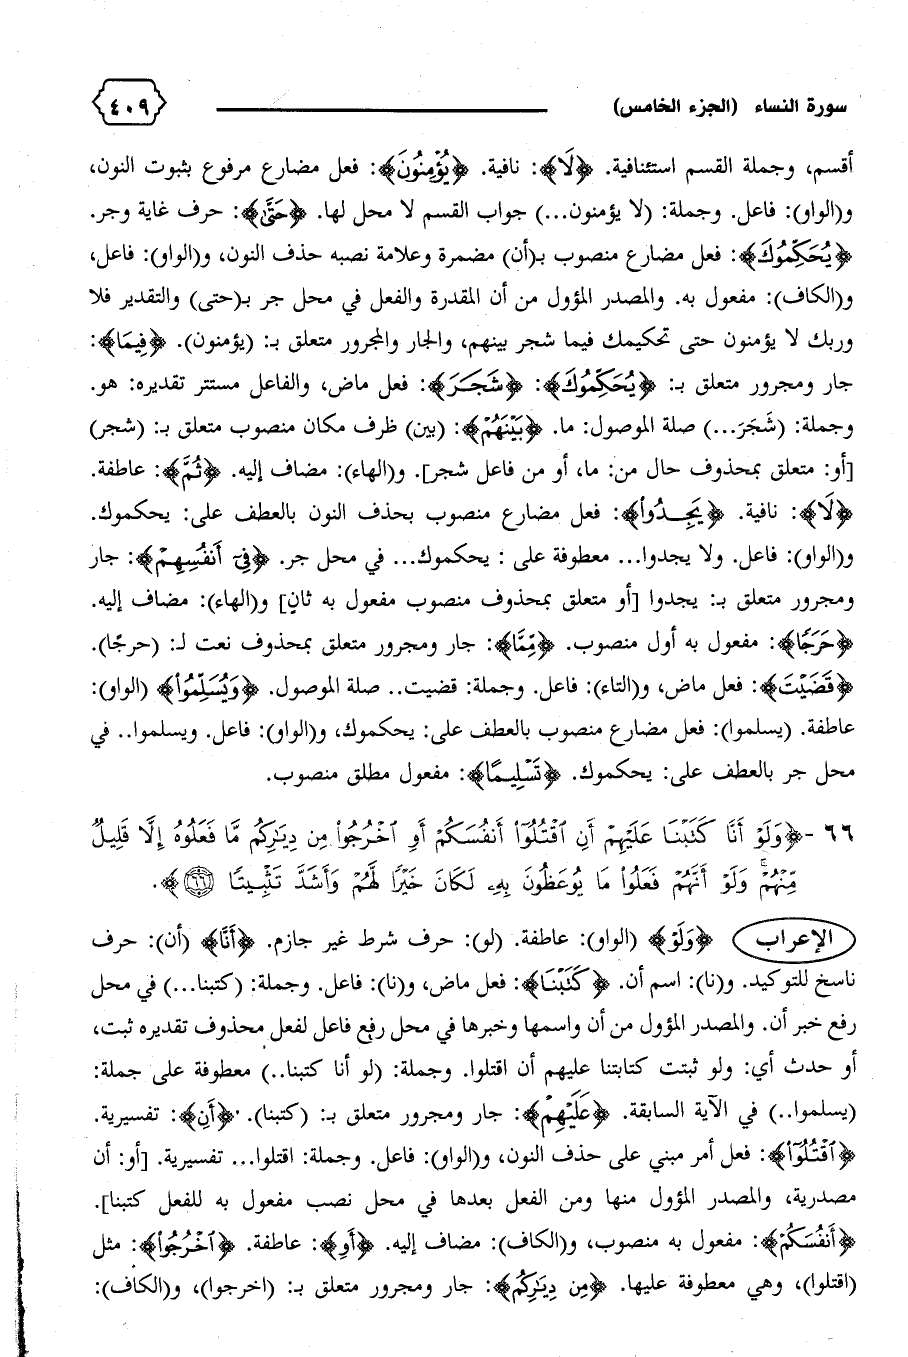 سورة النساء (الجزء الخامس) ٤٠٩
أقسم، وجملة القسم استئنافية. ﴿لَا﴾: نافية. ﴿يُؤْمِنُونَ﴾: فعل مضارع مرفوع بثبوت النون،
و(الواو): فاعل. وجملة: (لا يؤمنون...) جواب القسم لا محل لها. ﴿حَتَّىٰ﴾: حرف غاية وجر.
﴿يُحَكِّمُوكَ﴾: فعل مضارع منصوب بـ(أن) مضمرة وعلامة نصبه حذف النون، و(الواو): فاعل،
و(الكاف): مفعول به. والمصدر المؤول من أن المقدرة والفعل في محل جر بـ(حتى) والتقدير فلا
وربك لا يؤمنون حتى تحكيمك فيما شجر بينهم، والجار والمجرور متعلق بـ: (يؤمنون). ﴿فِيمَا﴾:
جار ومجرور متعلق بـ: ﴿يُحَكِّمُوكَ﴾: ﴿شَجَرَ﴾: فعل ماض، والفاعل مستتر تقديره: هو.
وجملة: (شَجَرَ...) صلة الموصول: ما. ﴿بَيْنَهُمْ﴾: (بين) ظرف مكان منصوب متعلق بـ: (شجر)
[أو: متعلق بمحذوف حال من: ما، أو من فاعل شجر]. و(الهاء): مضاف إليه. ﴿ثُمَّ﴾: عاطفة.
﴿لَا﴾: نافية. ﴿يَجِدُوا۟﴾: فعل مضارع منصوب بحذف النون بالعطف على: يحكموك.
و(الواو): فاعل. ولا يجدوا... معطوفة على : يحكموك... في محل جر. ﴿فِىٓ أَنفُسِهِمْ﴾: جار
ومجرور متعلق بـ: يجدوا [أو متعلق بمحذوف منصوب مفعول به ثانٍ] و(الهاء): مضاف إليه.
﴿حَرَجًا﴾: مفعول به أول منصوب. ﴿مِّمَّا﴾: جار ومجرور متعلق بمحذوف نعت لـ: (حرجًا).
﴿قَضَيْتَ﴾: فعل ماض، و(التاء): فاعل. وجملة: قضيت.. صلة الموصول. ﴿وَيُسَلِّمُوا۟﴾ (الواو):
عاطفة. (يسلموا): فعل مضارع منصوب بالعطف على: يحكموك، و(الواو): فاعل. ويسلموا.. في
محل جر بالعطف على: يحكموك. ﴿تَسْلِيمًا﴾: مفعول مطلق منصوب.
٦٦ - ﴿وَلَوْ أَنَّا كَتَبْنَا عَلَيْهِمْ أَنِ ٱقْتُلُوٓا۟ أَنفُسَكُمْ أَوِ ٱخْرُجُوا۟ مِن دِيَٰرِكُم مَّا فَعَلُوهُ إِلَّا قَلِيلٌ
مِّنْهُمْ ۖ وَلَوْ أَنَّهُمْ فَعَلُوا۟ مَا يُوعَظُونَ بِهِۦ لَكَانَ خَيْرًا لَّهُمْ وَأَشَدَّ تَثْبِيتًا ﴿٦٦﴾﴾.
الإعراب ﴿وَلَوْ﴾ (الواو): عاطفة. (لو): حرف شرط غير جازم. ﴿أَنَّا﴾ (أن): حرف
ناسخ للتوكيد. و(نا): اسم أن. ﴿كَتَبْنَا﴾: فعل ماض، و(نا): فاعل. وجملة: (كتبنا...) في محل
رفع خبر أن. والمصدر المؤول من أن واسمها وخبرها في محل رفع فاعل لفعل محذوف تقديره ثبت،
أو حدث أي: ولو ثبتت كتابتنا عليهم أن اقتلوا. وجملة: (لو أنا كتبنا..) معطوفة على جملة:
(يسلموا..) في الآية السابقة. ﴿عَلَيْهِمْ﴾: جار ومجرور متعلق بـ: (كتبنا). ﴿أَنِ﴾: تفسيرية.
﴿ٱقْتُلُوٓا۟﴾: فعل أمر مبني على حذف النون، و(الواو): فاعل. وجملة: اقتلوا... تفسيرية. [أو: أن
مصدرية، والمصدر المؤول منها ومن الفعل بعدها في محل نصب مفعول به للفعل كتبنا].
﴿أَنفُسَكُمْ﴾: مفعول به منصوب، و(الكاف): مضاف إليه. ﴿أَوِ﴾: عاطفة. ﴿ٱخْرُجُوا۟﴾: مثل
(اقتلوا)، وهي معطوفة عليها. ﴿مِن دِيَٰرِكُم﴾: جار ومجرور متعلق بـ: (اخرجوا)، و(الكاف):